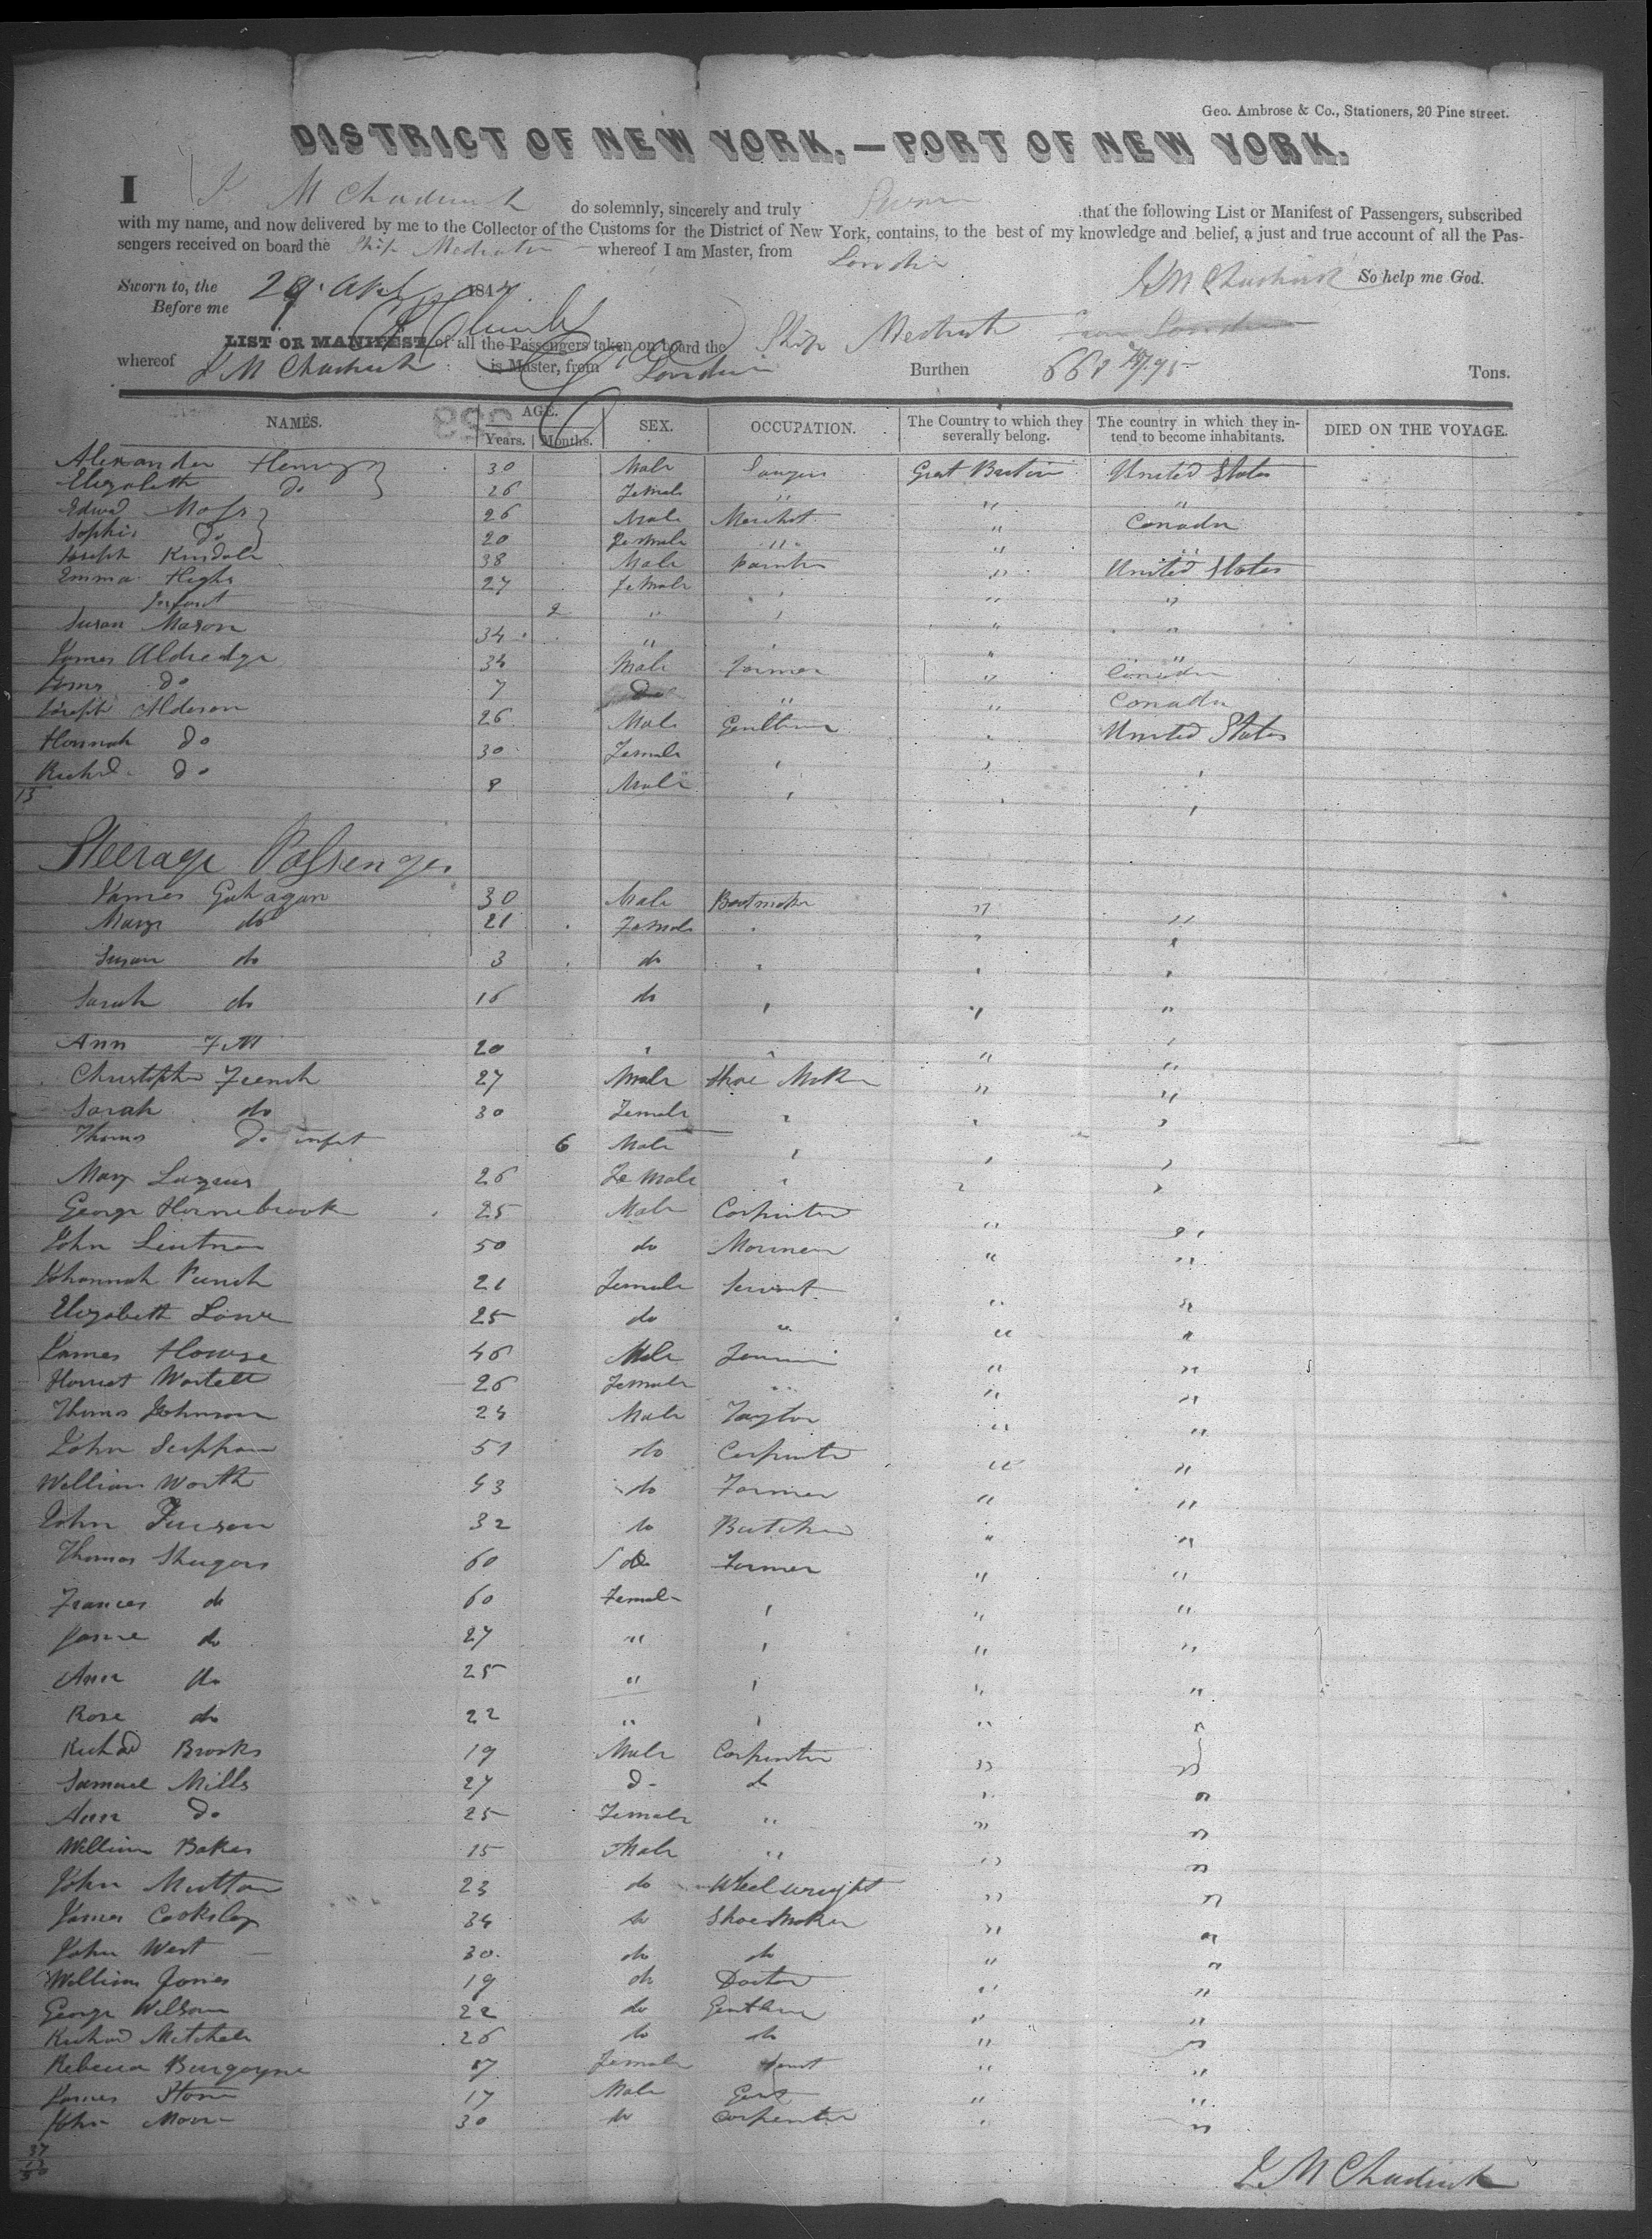 Geo. Ambrose & Co., Stationers, 20 Pine street.
DISTRICT OF NEW YORK.—PORT OF NEW YORK.
I J M Chadwick do solemnly, sincerely and truly Swear that the following List or Manifest of Passengers, subscribed
with my name, and now delivered by me to the Collector of the Customs for the District of New York, contains, to the best of my knowledge and belief, a just and true account of all the Pas-
sengers received on board the Ship Mediator whereof I am Master, from London
Sworn to, the 29 Apl 1847 J M Chadwick So help me God.
Before me
LIST OR MANIFEST of all the Passengers taken on board the Ship Mediator from London
whereof J M Chadwick is Master, from London Burthen 95 Tons.
NAMES. AGE. SEX. OCCUPATION. The Country to which they severally belong. The country in which they intend to become inhabitants. DIED ON THE VOYAGE.
Years. Months.
Alexander Henry 30 Male Great Britain United States
Elizabeth do 26 Female " " "
Edwd Moss 26 Male Merchat " Canada
Sophia do 20 Female " " "
Joseph Kendale 38 Male " United States
Emma 27 Female " "
Infant 2 " " "
Susan Mason 34 " " "
James Aldredge 34 Male Farmer " Canada
James do 7 do " " Canada
Joseph Alderson 26 Male Gentleman " United States
Hannah do 30 Female " " "
Richd do 8 Male " " "
13
Steerage Passenger
James Gahagan 30 Male Bootmaker " "
Mary do 21 Female " " "
Susan do 3 do " " "
Sarah do 16 do " " "
Ann 20 " " " "
Christopher French 27 Male Shoe Maker " "
Sarah do 30 Female " " "
Thomas do infant 6 Male " " "
Mary 26 Female " " "
George Hornebrook 25 Male Carpenter " "
John 50 do " "
Johannah Punch 21 Female Servant " "
Elizabeth Lowe 25 do " " "
James Howse 46 Male " "
Harriet 26 Female " " "
Thomas Johnson 24 Male Taylor " "
John 51 do Carpenter " "
William Worth 43 do Farmer " "
John 32 do Butcher " "
Thomas 60 do Farmer " "
Frances do 60 Female " " "
Jane do 27 " " " "
Ann do 25 " " " "
Rose do 22 " " " "
Richad Brooks 19 Male Carpenter " "
Samuel Mills 27 do do " "
Ann do 25 Female " " "
William Baker 15 Male " " "
John Mutton 23 do Wheelwright " "
James Cooksley 34 do Shoemaker " "
John West 30 do do " "
William Jones 19 do Doctor " "
George Wilson 22 do Gentleman " "
Richad Mitchell 26 do do " "
Rebecca Burgoyne 17 Female " "
James Stone 17 Male Gent " "
John Moore 30 do Carpenter " "
37
13
50
J M Chadwick